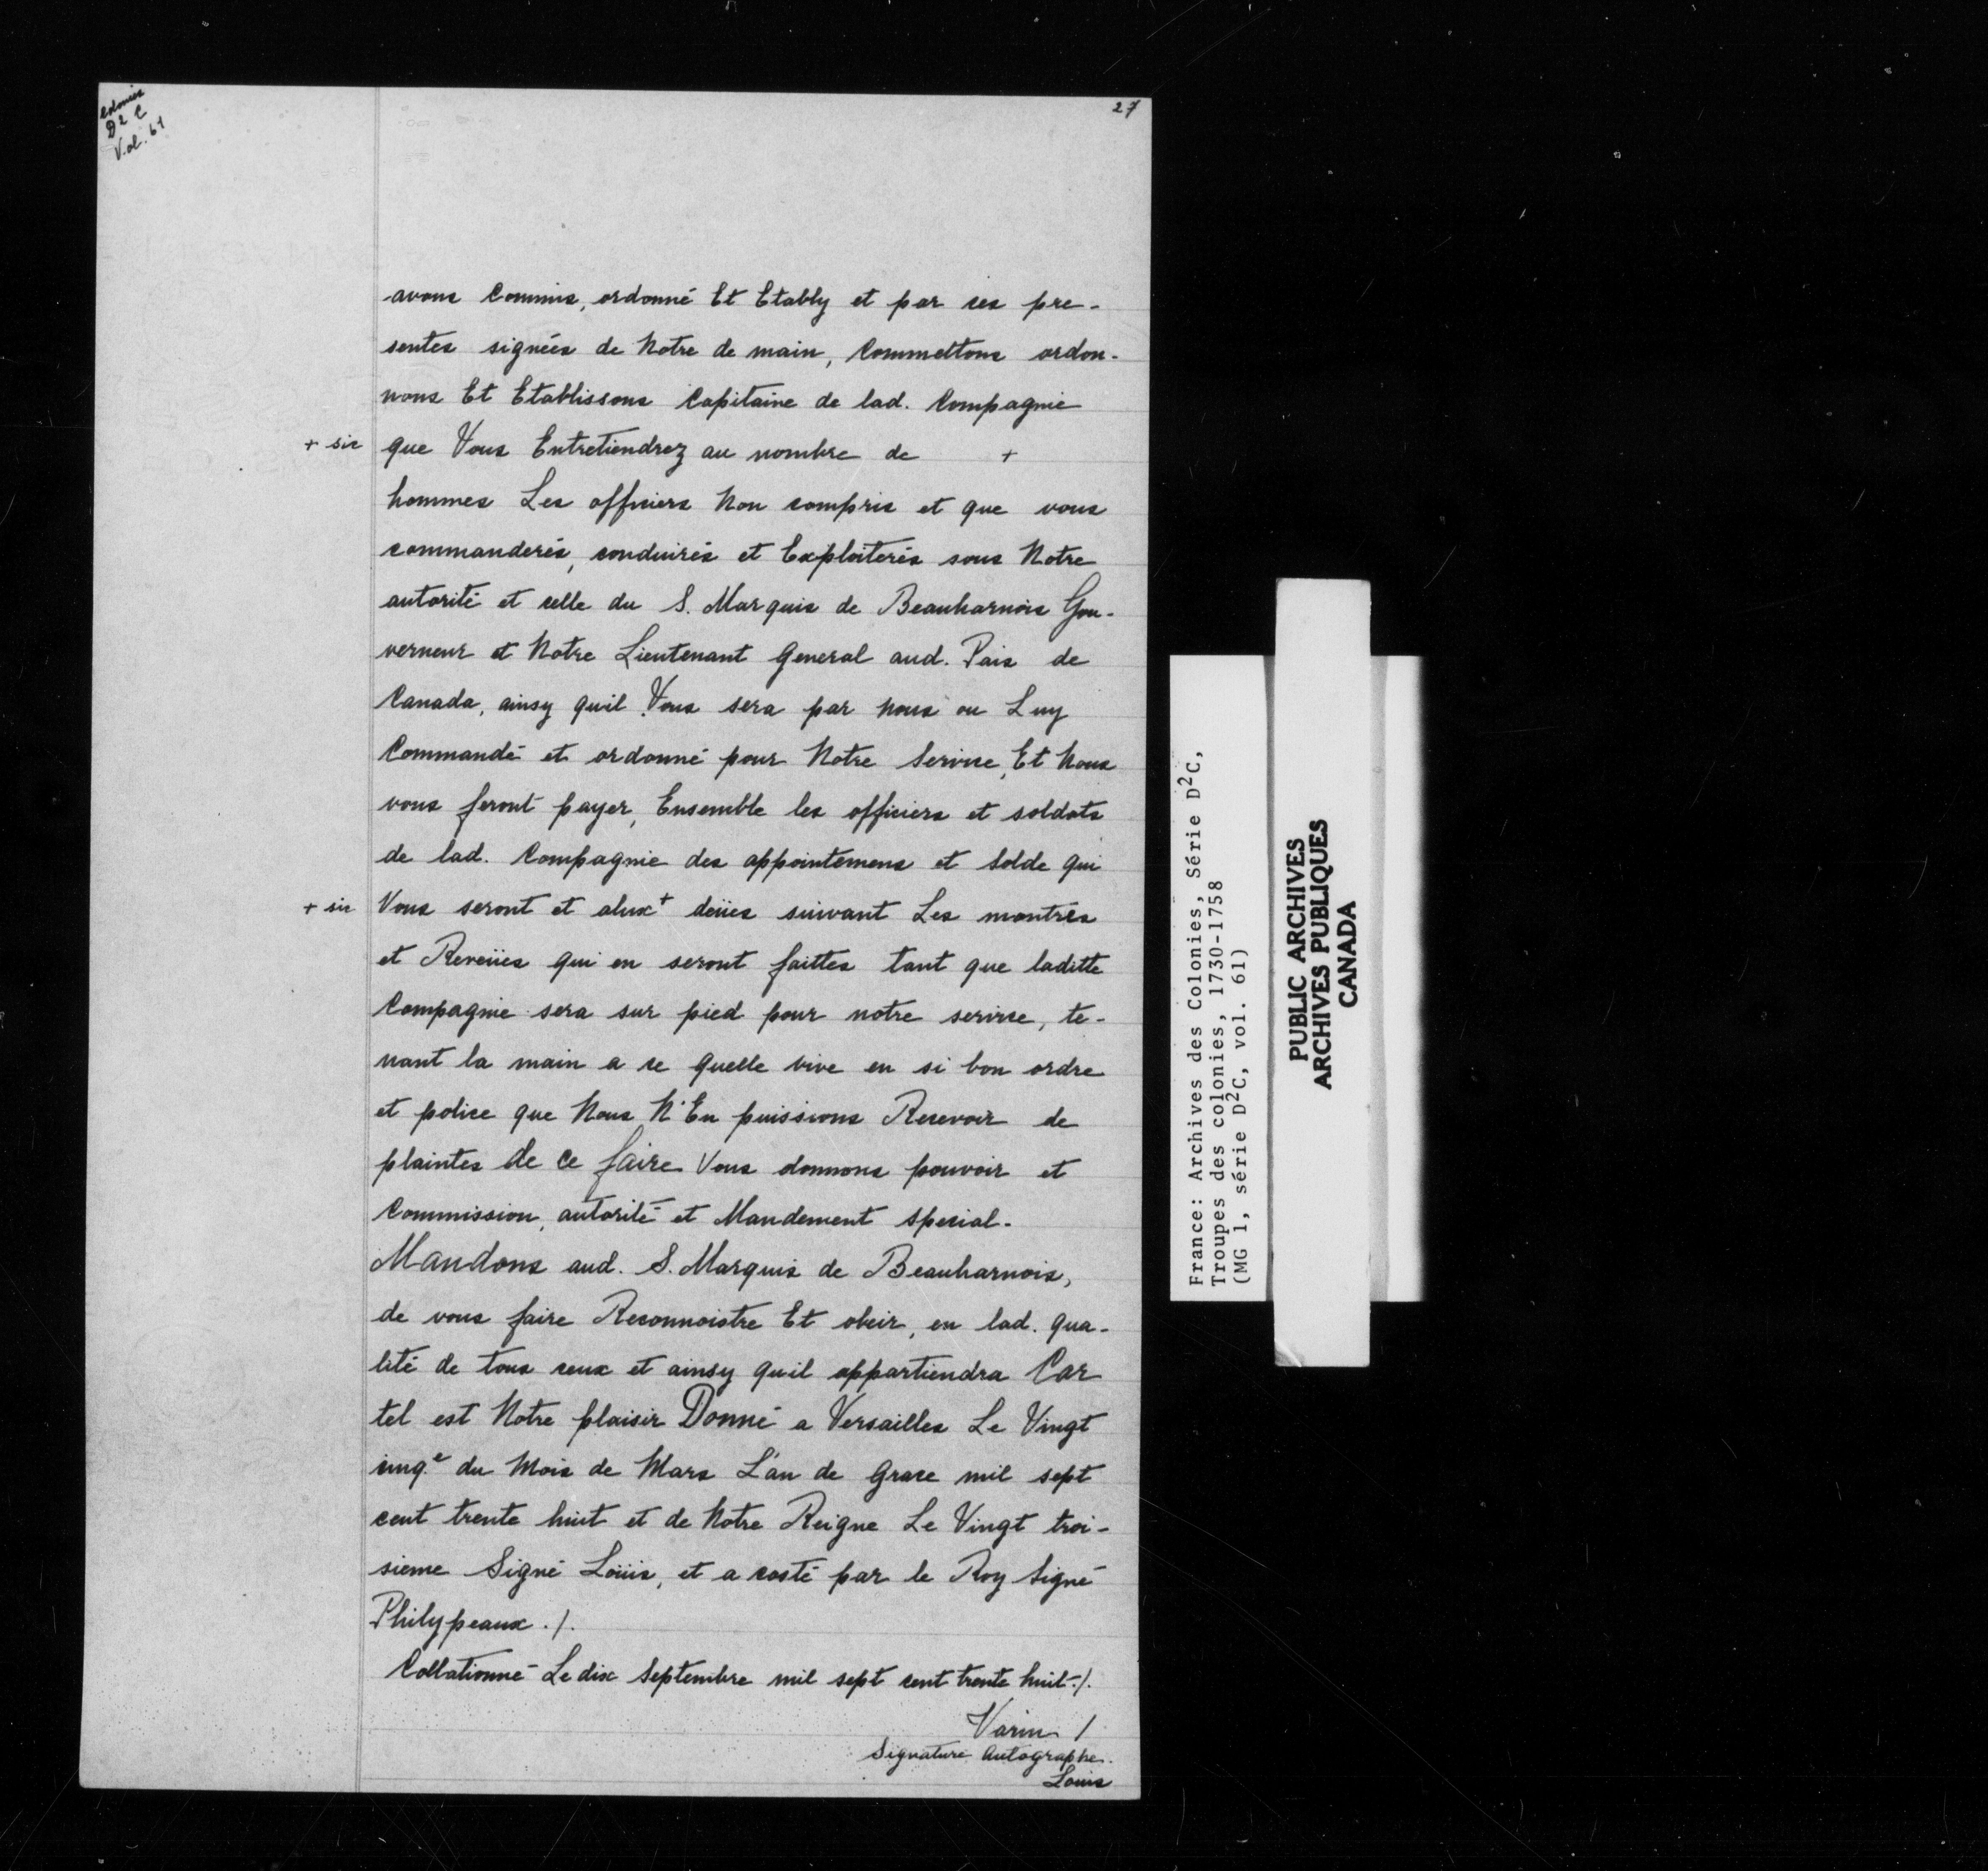 Colonies
D2 C
Vol. 61
27
avons Commis, ordonné Et Etably et par ces pre-
sentes signées de Notre de main, Commettons ordon-
nons Et Etablissons Capitaine de lad. Compagnie
+ sic que Vous Entretiendrez au nombre de +
hommes Les officiers Non compris et que vous
commanderés, conduirés et Exploiterés sous Notre
autorité et celle du S. Marquis de Beauharnois Gou-
verneur et Notre Lieutenant General aud. Pais de
Canada, ainsy quil Vous sera par nous ou Luy
Commandé et ordonné pour Notre Service, Et Nous
vous feront payer, Ensemble les officiers et soldats
de lad. Compagnie des appointemens et Solde qui
+ sic Vous seront et alux+ deües suivant Les montrés
et Reveües qui en seront faittes tant que laditte
Compagnie sera sur pied pour notre service, te-
nant la main a ce quelle vive en si bon ordre
et police que Nous N'En puissions Recevoir de
plaintes de ce faire Vous donnons pouvoir et
Commission, autorité et Mandement special.
Mandons aud. S. Marquis de Beauharnois,
de vous faire Reconnoistre Et obeir, en lad. qua-
lité de tous ceux et ainsy quil appartiendra Car
tel est Notre plaisir Donné a Versailles Le Vingt
cinq.e du Mois de Mars L'an de Grace mil sept
cent trente huit et de Notre Reigne Le Vingt troi-
sieme Signé Loüis, et a costé par le Roy Signé
Philypeaux ./.
Collationné Le dix Septembre mil sept cent trente huit ./.
Varin /
Signature Autographe.
Louis
France: Archives des Colonies, Série D2C,
Troupes des colonies, 1730-1758
(MG 1, série D2C, vol. 61)
PUBLIC ARCHIVES
ARCHIVES PUBLIQUES
CANADA